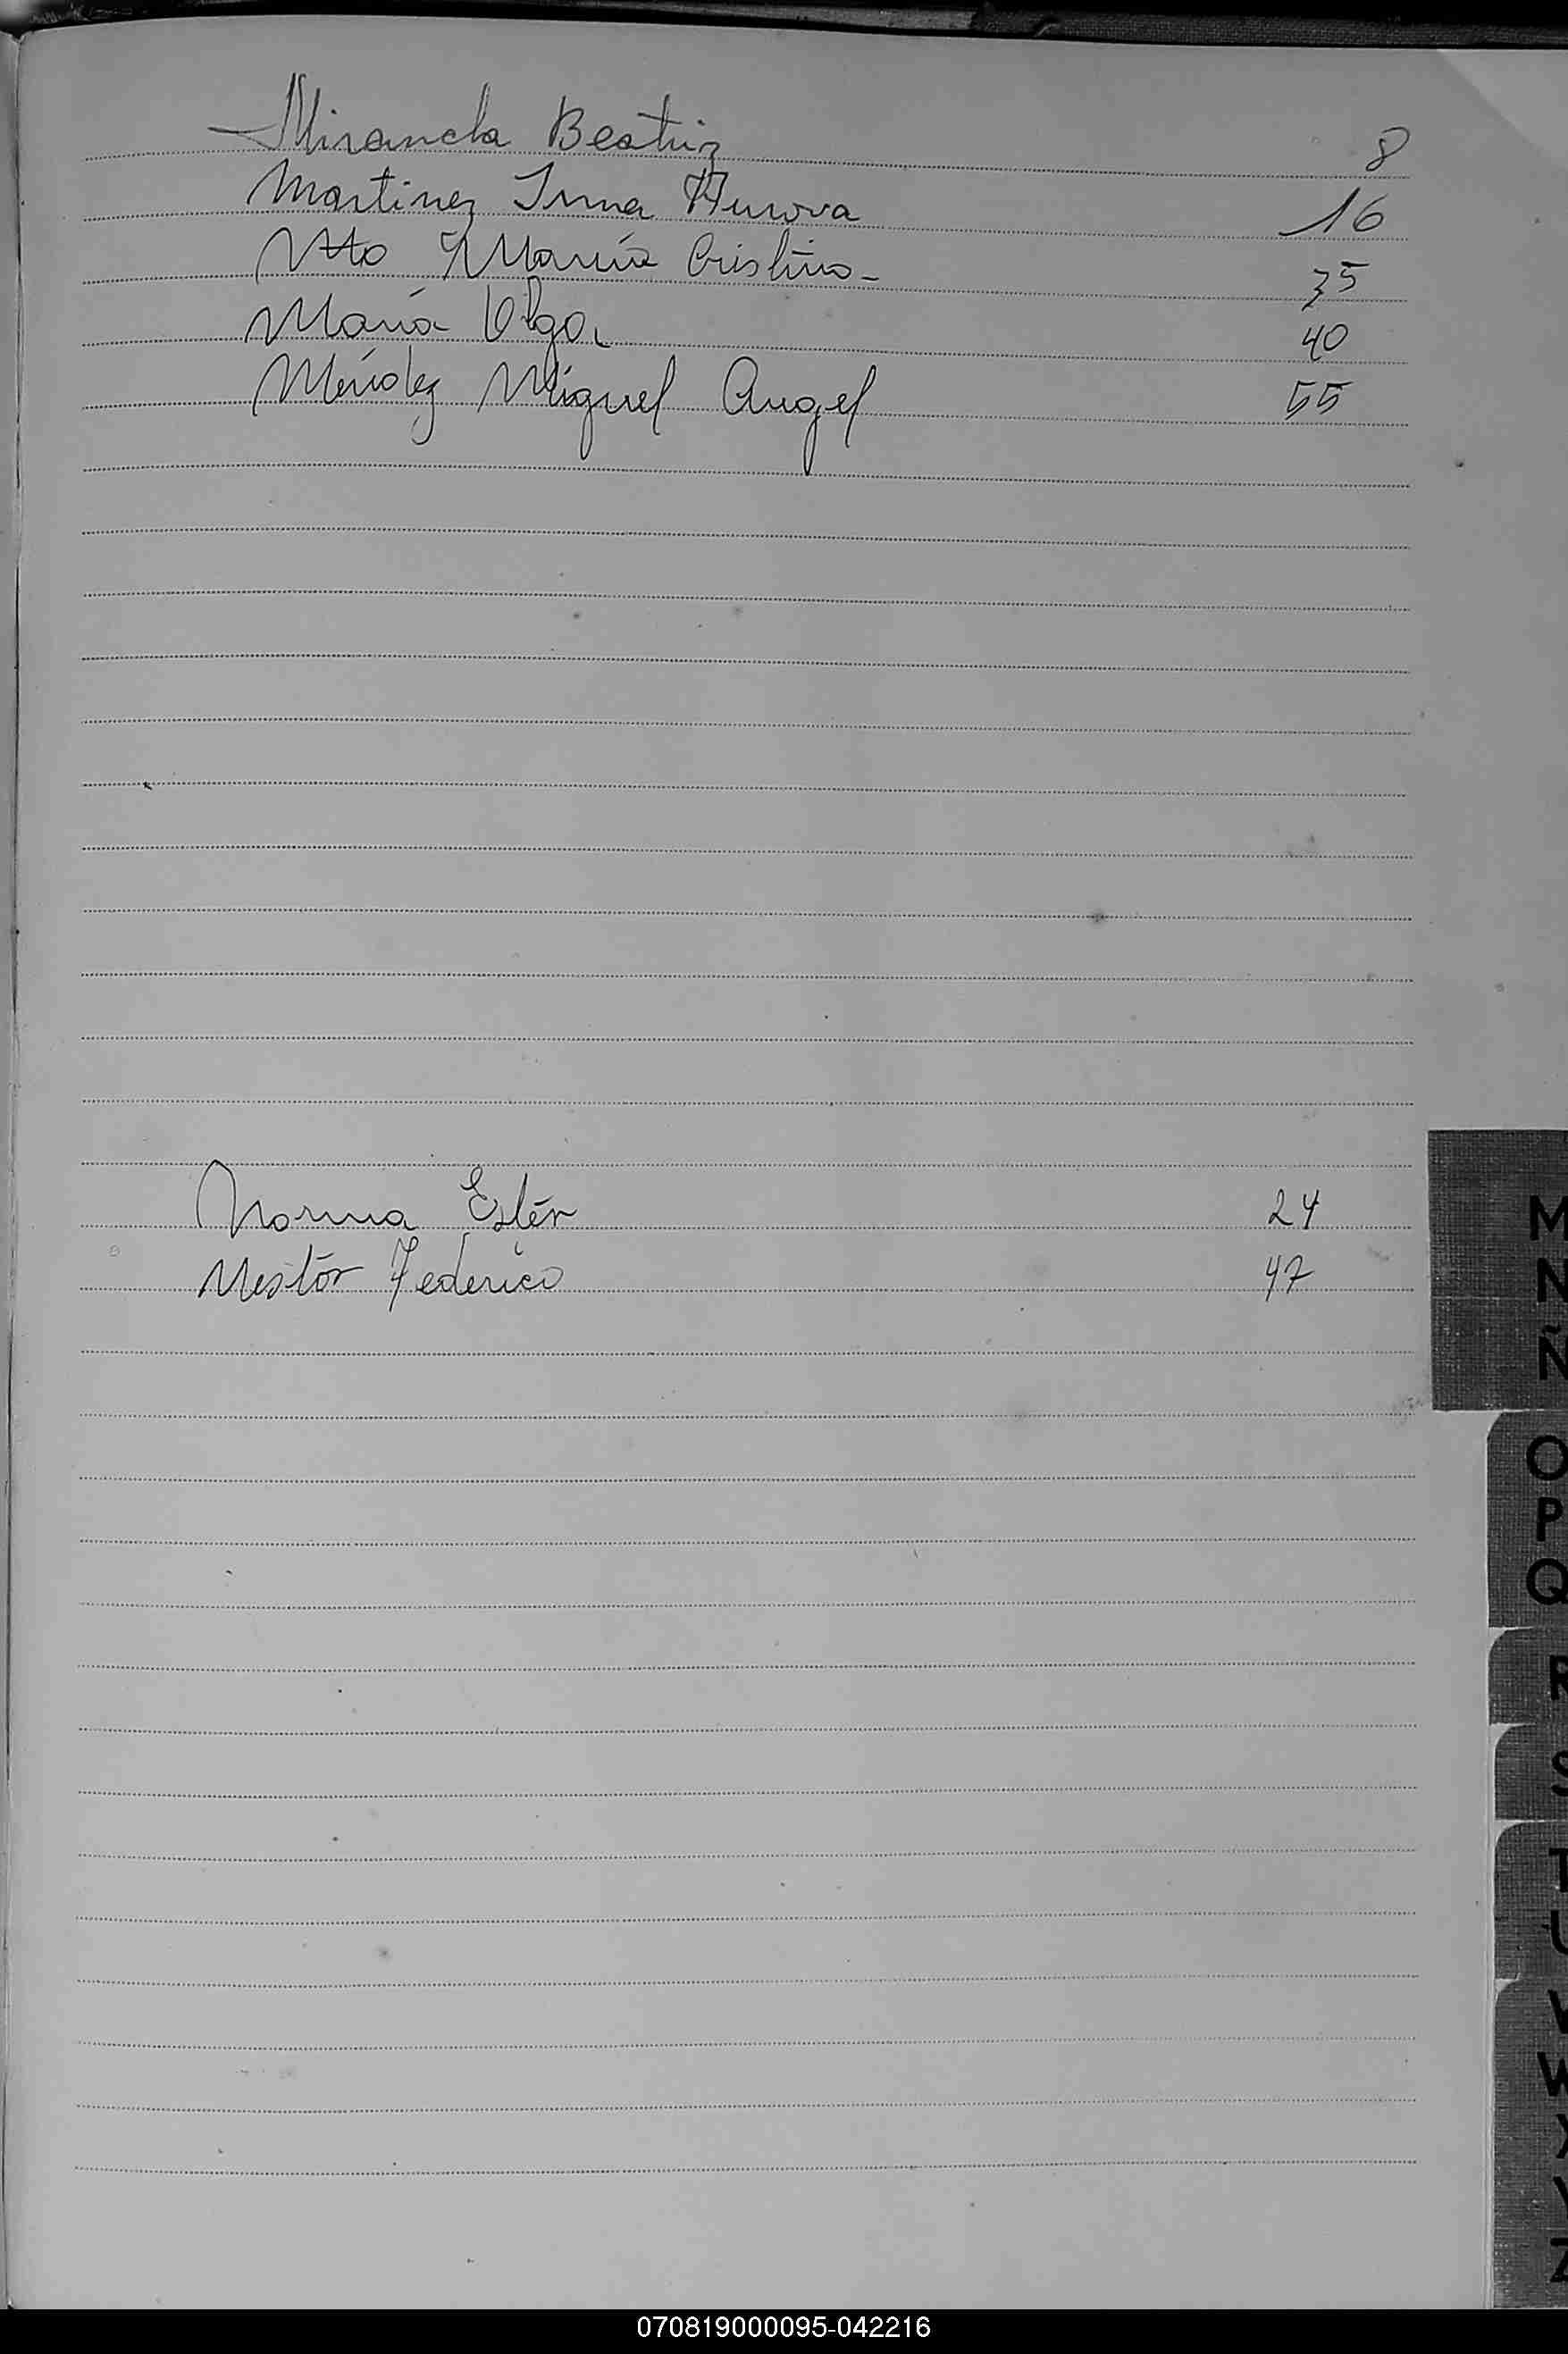 Miranda Beatriz 8
Martinez Irma Aurora 16
María Cristina - 35
María Olga 40
Méndez Miguel Angel 55
Norma Estér 24
Nestór Federico 47
M
N
Ñ
O
P
Q
R
S
T
U
V
W
X
Y
Z
070819000095-042216